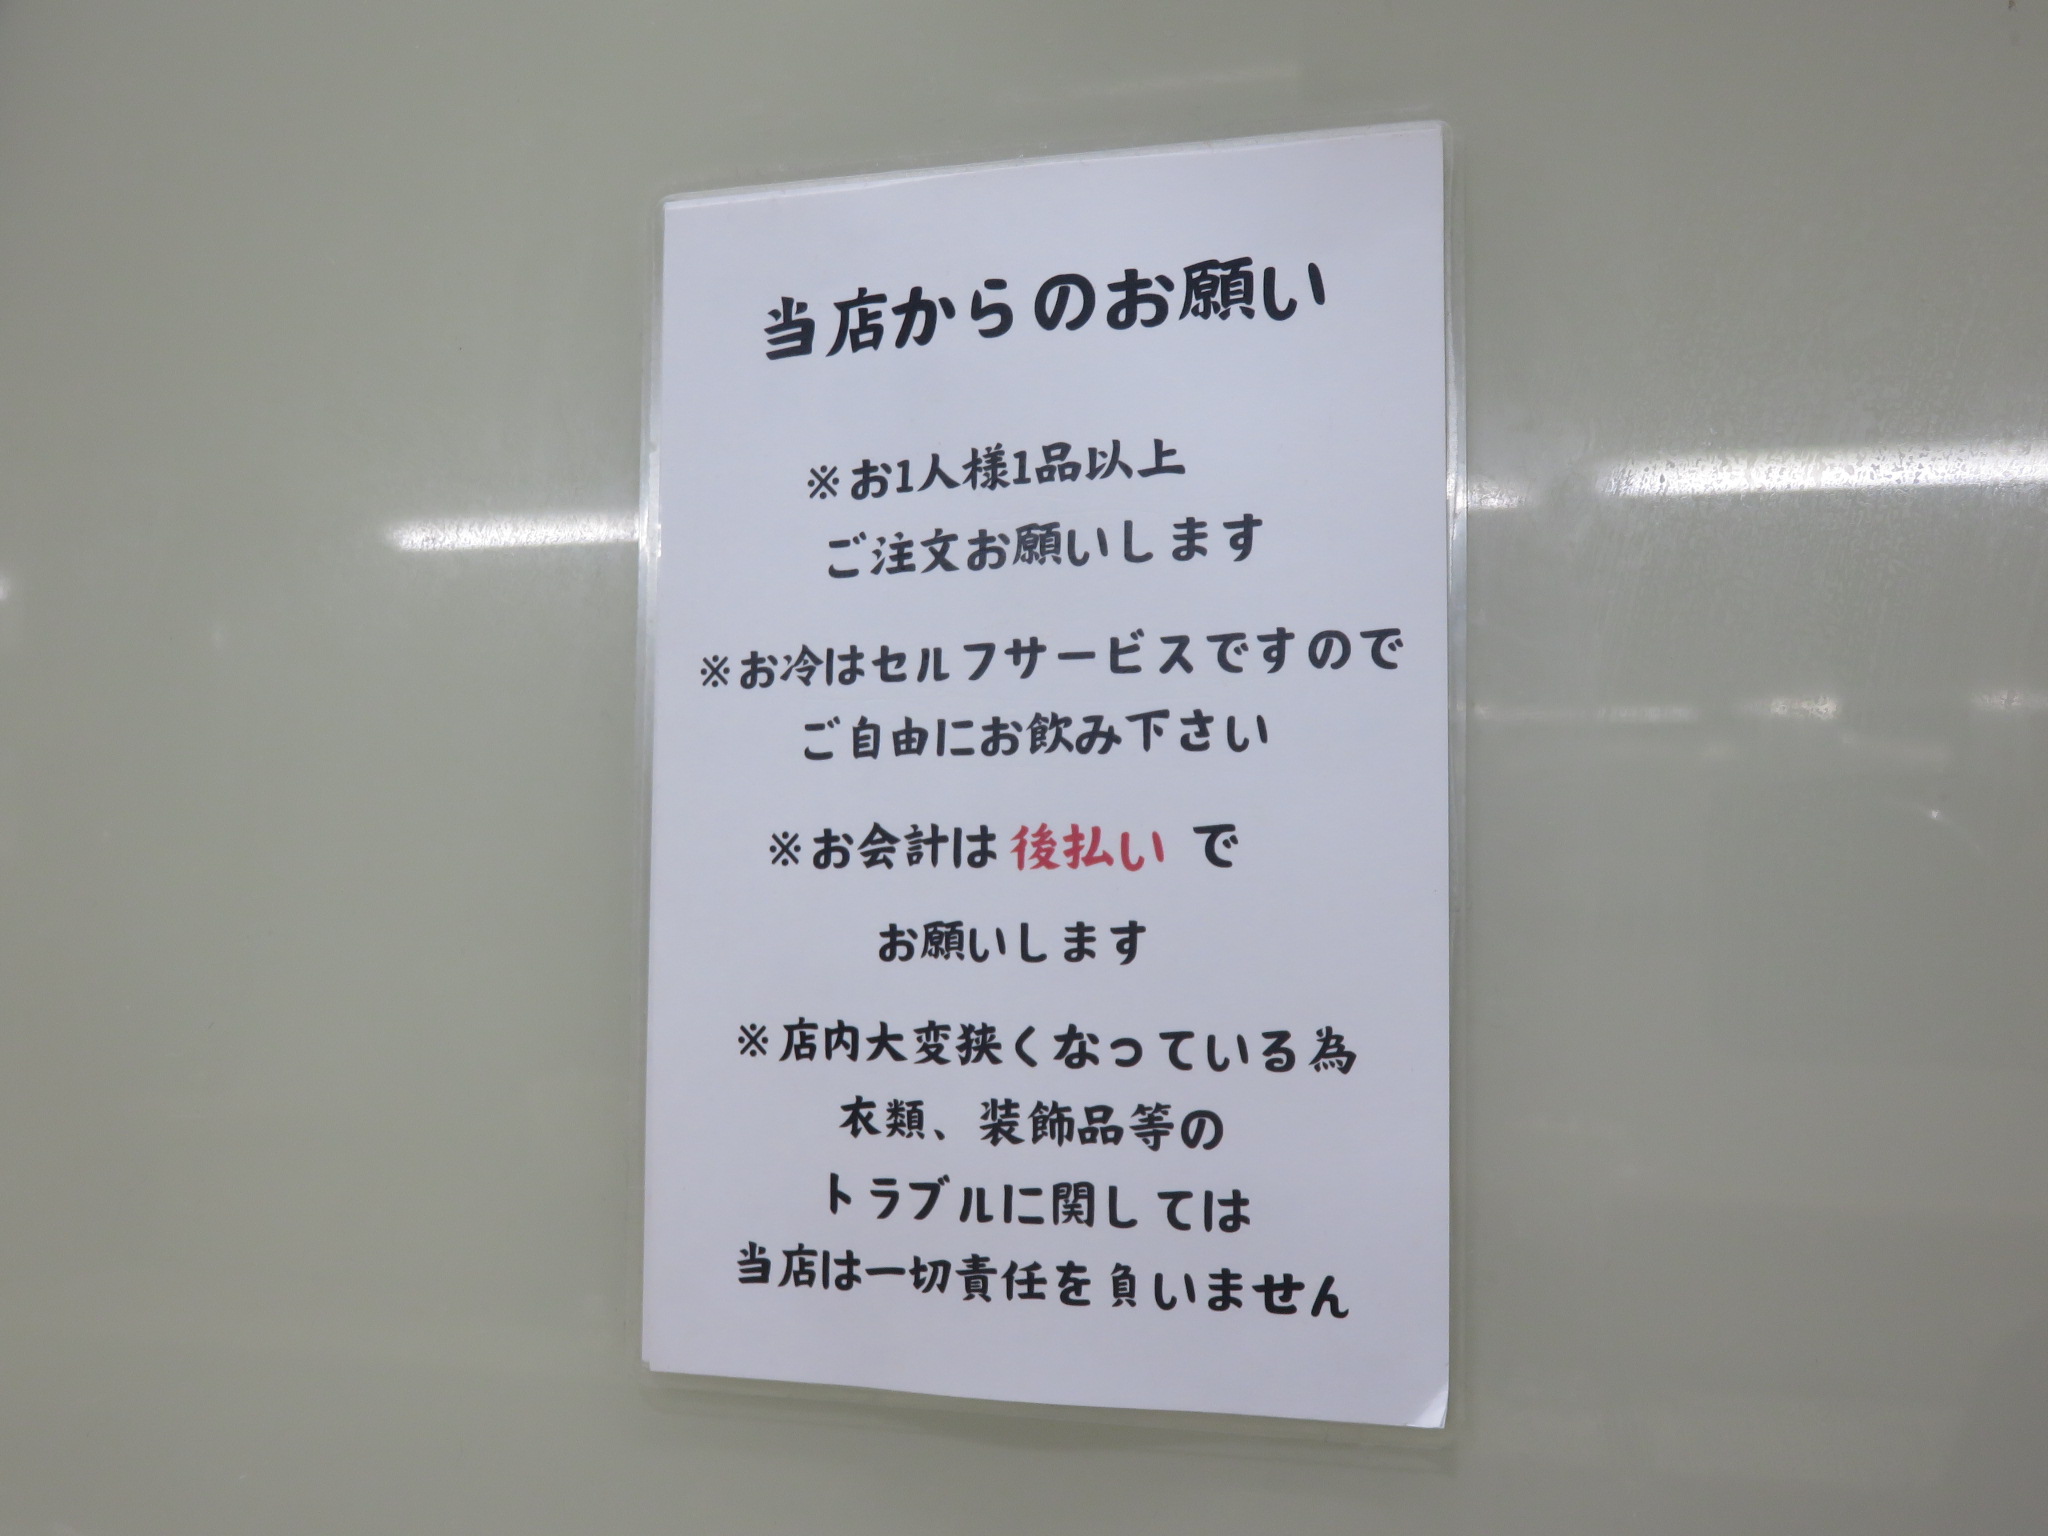 当店からのお願い
※お1人様1品以上
ご注文お願いします
※お冷はセルフサービスですので
ご自由にお飲み下さい
※お会計は後払いで
お願いします
※店内大変狭くなっている為
衣類、装飾品等の
トラブルに関しては
当店は一切責任を負いません